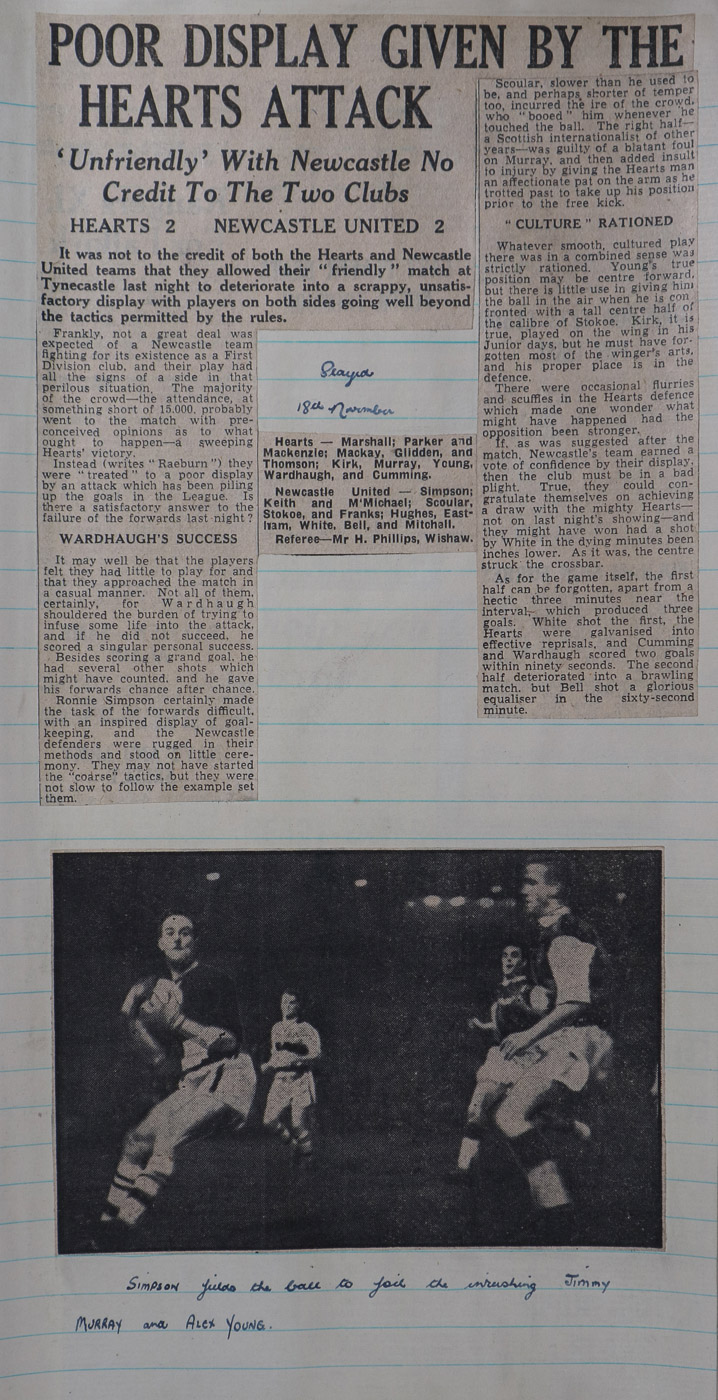 POOR DISPLAY GIVEN BY THE
HEARTS ATTACK
'Unfriendly' With Newcastle No
Credit To The Two Clubs
HEARTS 2 NEWCASTLE UNITED 2
It was not to the credit of both the Hearts and Newcastle
United teams that they allowed their "friendly" match at
Tynecastle last night to deteriorate into a scrappy, unsatis-
factory display with players on both sides going well beyond
the tactics permitted by the rules.
Frankly, not a great deal was
expected of a Newcastle team
fighting for its existence as a First
Division club, and their play had
all the signs of a side in that
perilous situation. The majority
of the crowd—the attendance, at
something short of 15,000, probably
went to the match with pre-
conceived opinions as to what
ought to happen—a sweeping
Hearts' victory.
Instead (writes "Raeburn") they
were "treated" to a poor display
by an attack which has been piling
up the goals in the League. Is
there a satisfactory answer to the
failure of the forwards last night?
WARDHAUGH'S SUCCESS
It may well be that the players
felt they had little to play for and
that they approached the match in
a casual manner. Not all of them,
certainly, for Wardhaugh
shouldered the burden of trying to
infuse some life into the attack,
and if he did not succeed, he
scored a singular personal success.
Besides scoring a grand goal, he
had several other shots which
might have counted, and he gave
his forwards chance after chance.
Ronnie Simpson certainly made
the task of the forwards difficult,
with an inspired display of goal-
keeping, and the Newcastle
defenders were rugged in their
methods and stood on little cere-
mony. They may not have started
the "coarse" tactics, but they were
not slow to follow the example set
them.
Played
18th November
Hearts — Marshall; Parker and
Mackenzie; Mackay, Glidden, and
Thomson; Kirk, Murray, Young,
Wardhaugh, and Cumming.
Newcastle United — Simpson;
Keith and M'Michael; Scoular,
Stokoe, and Franks; Hughes, East-
ham, White, Bell, and Mitchell.
Referee—Mr H. Phillips, Wishaw.
Scoular, slower than he used to
be, and perhaps shorter of temper
too, incurred the ire of the crowd,
who "booed" him whenever he
touched the ball. The right half—
a Scottish internationalist of other
years—was guilty of a blatant foul
on Murray, and then added insult
to injury by giving the Hearts man
an affectionate pat on the arm as he
trotted past to take up his position
prior to the free kick.
"CULTURE" RATIONED
Whatever smooth, cultured play
there was in a combined sense was
strictly rationed. Young's true
position may be centre forward,
but there is little use in giving him
the ball in the air when he is con
fronted with a tall centre half of
the calibre of Stokoe. Kirk, it is
true, played on the wing in his
Junior days, but he must have for-
gotten most of the winger's arts,
and his proper place is in the
defence.
There were occasional flurries
and scuffles in the Hearts defence
which made one wonder what
might have happened had the
opposition been stronger.
If, as was suggested after the
match, Newcastle's team earned a
vote of confidence by their display,
then the club must be in a bad
plight. True, they could con-
gratulate themselves on achieving
a draw with the mighty Hearts—
not on last night's showing—and
they might have won had a shot
by White in the dying minutes been
inches lower. As it was, the centre
struck the crossbar.
As for the game itself, the first
half can be forgotten, apart from a
hectic three minutes near the
interval, which produced three
goals. White shot the first, the
Hearts were galvanised into
effective reprisals, and Cumming
and Wardhaugh scored two goals
within ninety seconds. The second
half deteriorated into a brawling
match, but Bell shot a glorious
equaliser in the sixty-second
minute.
SIMPSON fields the ball to foil the inrushing JIMMY
MURRAY and ALEX YOUNG.